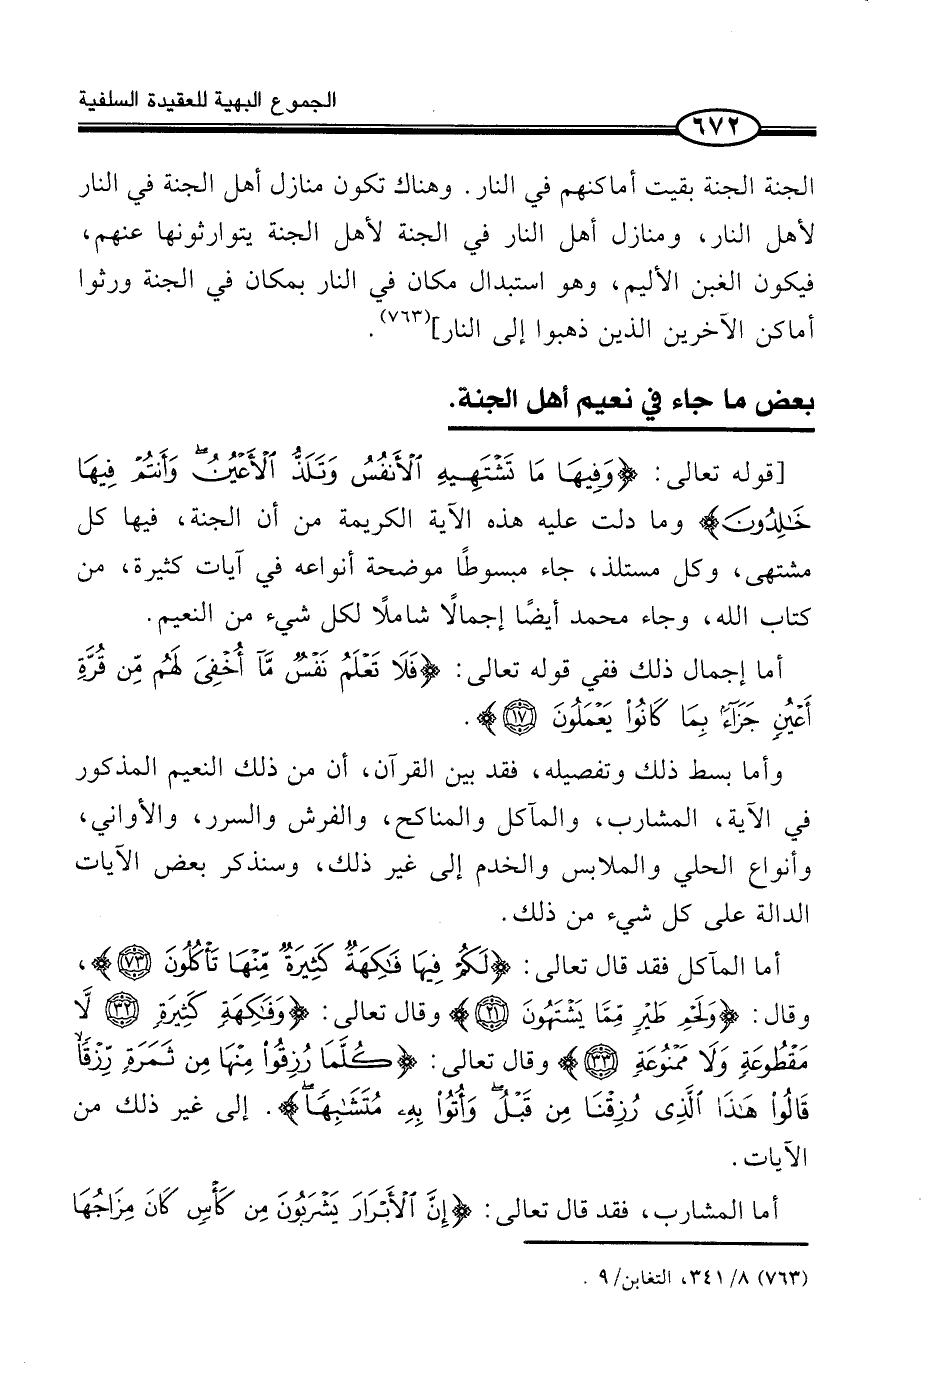 الجموع البهية للعقيدة السلفية
٦٧٢
الجنة الجنة بقيت أماكنهم في النار. وهناك تكون منازل أهل الجنة في النار
لأهل النار، ومنازل أهل النار في الجنة لأهل الجنة يتوارثونها عنهم،
فيكون الغبن الأليم، وهو استبدال مكان في النار بمكان في الجنة ورثوا
أماكن الآخرين الذين ذهبوا إلى النار](٧٦٣).
بعض ما جاء في نعيم أهل الجنة.
[قوله تعالى: ﴿وَفِيهَا مَا تَشْتَهِيهِ ٱلْأَنفُسُ وَتَلَذُّ ٱلْأَعْيُنُ ۖ وَأَنتُمْ فِيهَا
خَٰلِدُونَ﴾ وما دلت عليه هذه الآية الكريمة من أن الجنة، فيها كل
مشتهى، وكل مستلذ، جاء مبسوطًا موضحة أنواعه في آيات كثيرة، من
كتاب الله، وجاء محمد أيضًا إجمالًا شاملًا لكل شيء من النعيم.
أما إجمال ذلك ففي قوله تعالى: ﴿فَلَا تَعْلَمُ نَفْسٌ مَّآ أُخْفِىَ لَهُم مِّن قُرَّةِ
أَعْيُنٍ جَزَآءًۢ بِمَا كَانُوا۟ يَعْمَلُونَ ١٧﴾.
وأما بسط ذلك وتفصيله، فقد بين القرآن، أن من ذلك النعيم المذكور
في الآية، المشارب، والمآكل والمناكح، والفرش والسرر، والأواني،
وأنواع الحلي والملابس والخدم إلى غير ذلك، وسنذكر بعض الآيات
الدالة على كل شيء من ذلك.
أما المآكل فقد قال تعالى: ﴿لَكُمْ فِيهَا فَٰكِهَةٌ كَثِيرَةٌ مِّنْهَا تَأْكُلُونَ ٧٣﴾،
وقال: ﴿وَلَحْمِ طَيْرٍ مِّمَّا يَشْتَهُونَ ٢١﴾ وقال تعالى: ﴿وَفَٰكِهَةٍ كَثِيرَةٍ ٣٢ لَّا
مَقْطُوعَةٍ وَلَا مَمْنُوعَةٍ ٣٣﴾ وقال تعالى: ﴿كُلَّمَا رُزِقُوا۟ مِنْهَا مِن ثَمَرَةٍ رِّزْقًا ۙ
قَالُوا۟ هَٰذَا ٱلَّذِى رُزِقْنَا مِن قَبْلُ ۖ وَأُتُوا۟ بِهِۦ مُتَشَٰبِهًا ۖ﴾. إلى غير ذلك من
الآيات.
أما المشارب، فقد قال تعالى: ﴿إِنَّ ٱلْأَبْرَارَ يَشْرَبُونَ مِن كَأْسٍ كَانَ مِزَاجُهَا
(٧٦٣) ٨/ ٣٤١، التغابن/ ٩ .